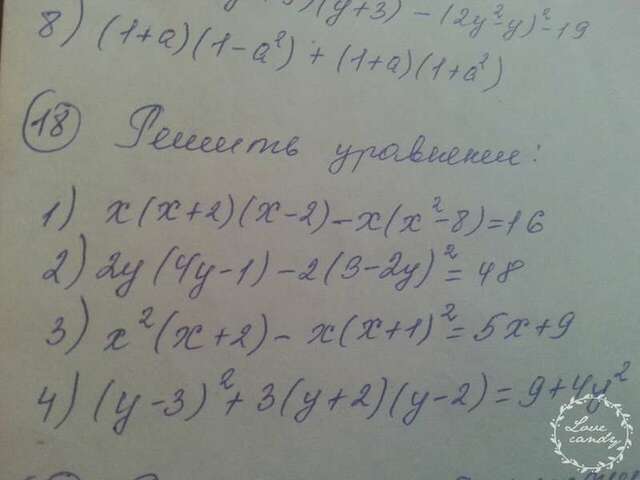 (y+3) - (2y²-y)²-19
8) (1+a)(1-a²) + (1+a)(1+a²)
18 Решить уравнения:
1) x(x+2)(x-2)-x(x²-8)=16
2) 2y(4y-1)-2(3-2y)²=48
3) x²(x+2)-x(x+1)²=5x+9
4) (y-3)²+3(y+2)(y-2)=9+4y²
Love
candy